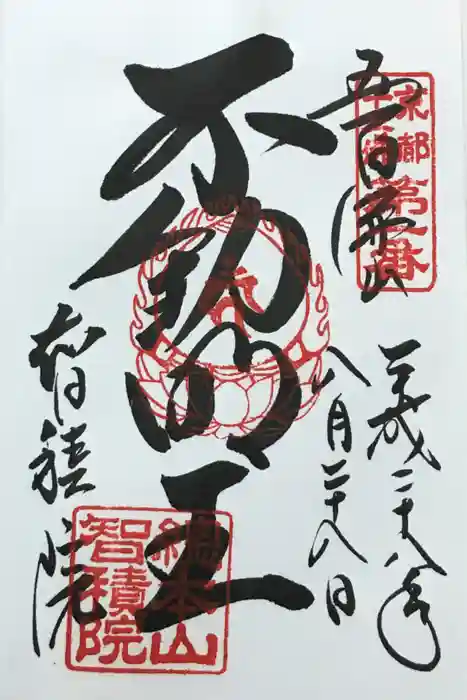 京都
十三佛
第一番
五百佛山
平成二十八年
八月二十八日
不動明王
智積院
總本山
智積院